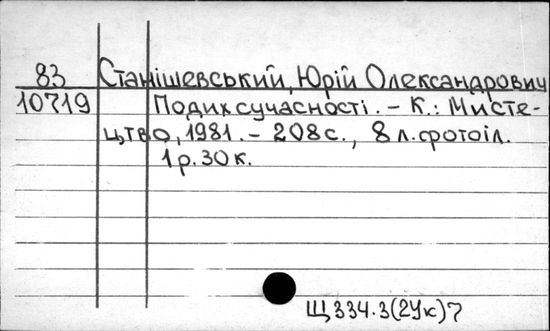 83 Станішевський, Юрій Олександрович
10719 Подих сучасності. – К.: Мисте-
цтво, 1981. – 208 с., 8 л. фотоіл.
1 р. 30 к.
Щ 334.3(2Ук)7